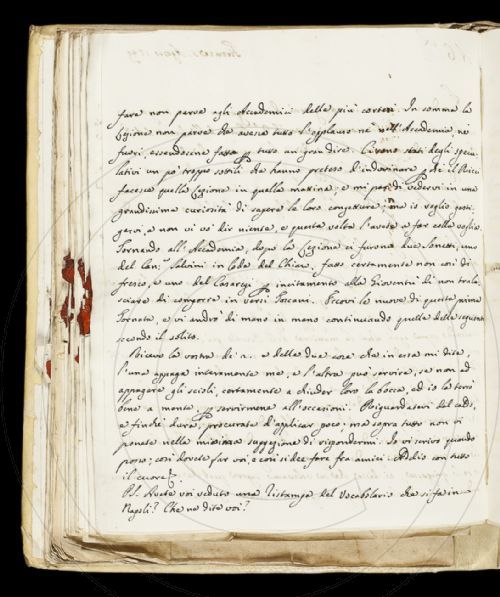 fare non parve agli Accademici delle più cortesi. In somma la
Lezione non parve che avesse tutto l'applauso nè nell'Accademia, nè
fuori, essendocene fatto un gran dire. Ci sono stati degli specu-
lativi un po' troppo sottili che hanno preteso d'indovinare che il Ricci
facesse quella Lezione in quella materia; e mi par di vedervi in una
grandissima curiosità di sapere le loro conjetture; ma io voglio gasti-
garvi, e non vi vo' dir niente, e questa volta l'avete a far colla voglia.
Tornando all'Accademia, dopo la Lezione ci furono due Sonetti, uno
del Can.co Salvini in lode del Chiav. fatto certamente non così di
fresco, e uno del Casaregi incitamento alla Gioventù di non trala-
sciare di comporre in versi Toscani. Eccovi le nuove di questa prima
Tornata, e vi andrò di mano in mano continuando quelle delle seguenti
secondo il solito.
Ricevo la vostra de' 2. e delle due cose che in essa mi dite,
l'una appaga interamente me, e l'altra può servire, se non ad
appagare gli scioli, certamente a chiuder loro la bocca, ed io la terrò
bene a mente servirmene all'occasioni. Riguardatevi del caldo,
e finchè dura, procurate d'applicar poco; ma sopra tutto non vi
ponete nella minima suggezione di rispondermi. Io vi scrivo quando
posso; così dovete far voi, e così si dee fare fra amici. Addio con tutto
il cuore.
P.S. Avete voi veduto una Ristampa del Vocabolario che si fa in
Napoli? Che ne dite voi?